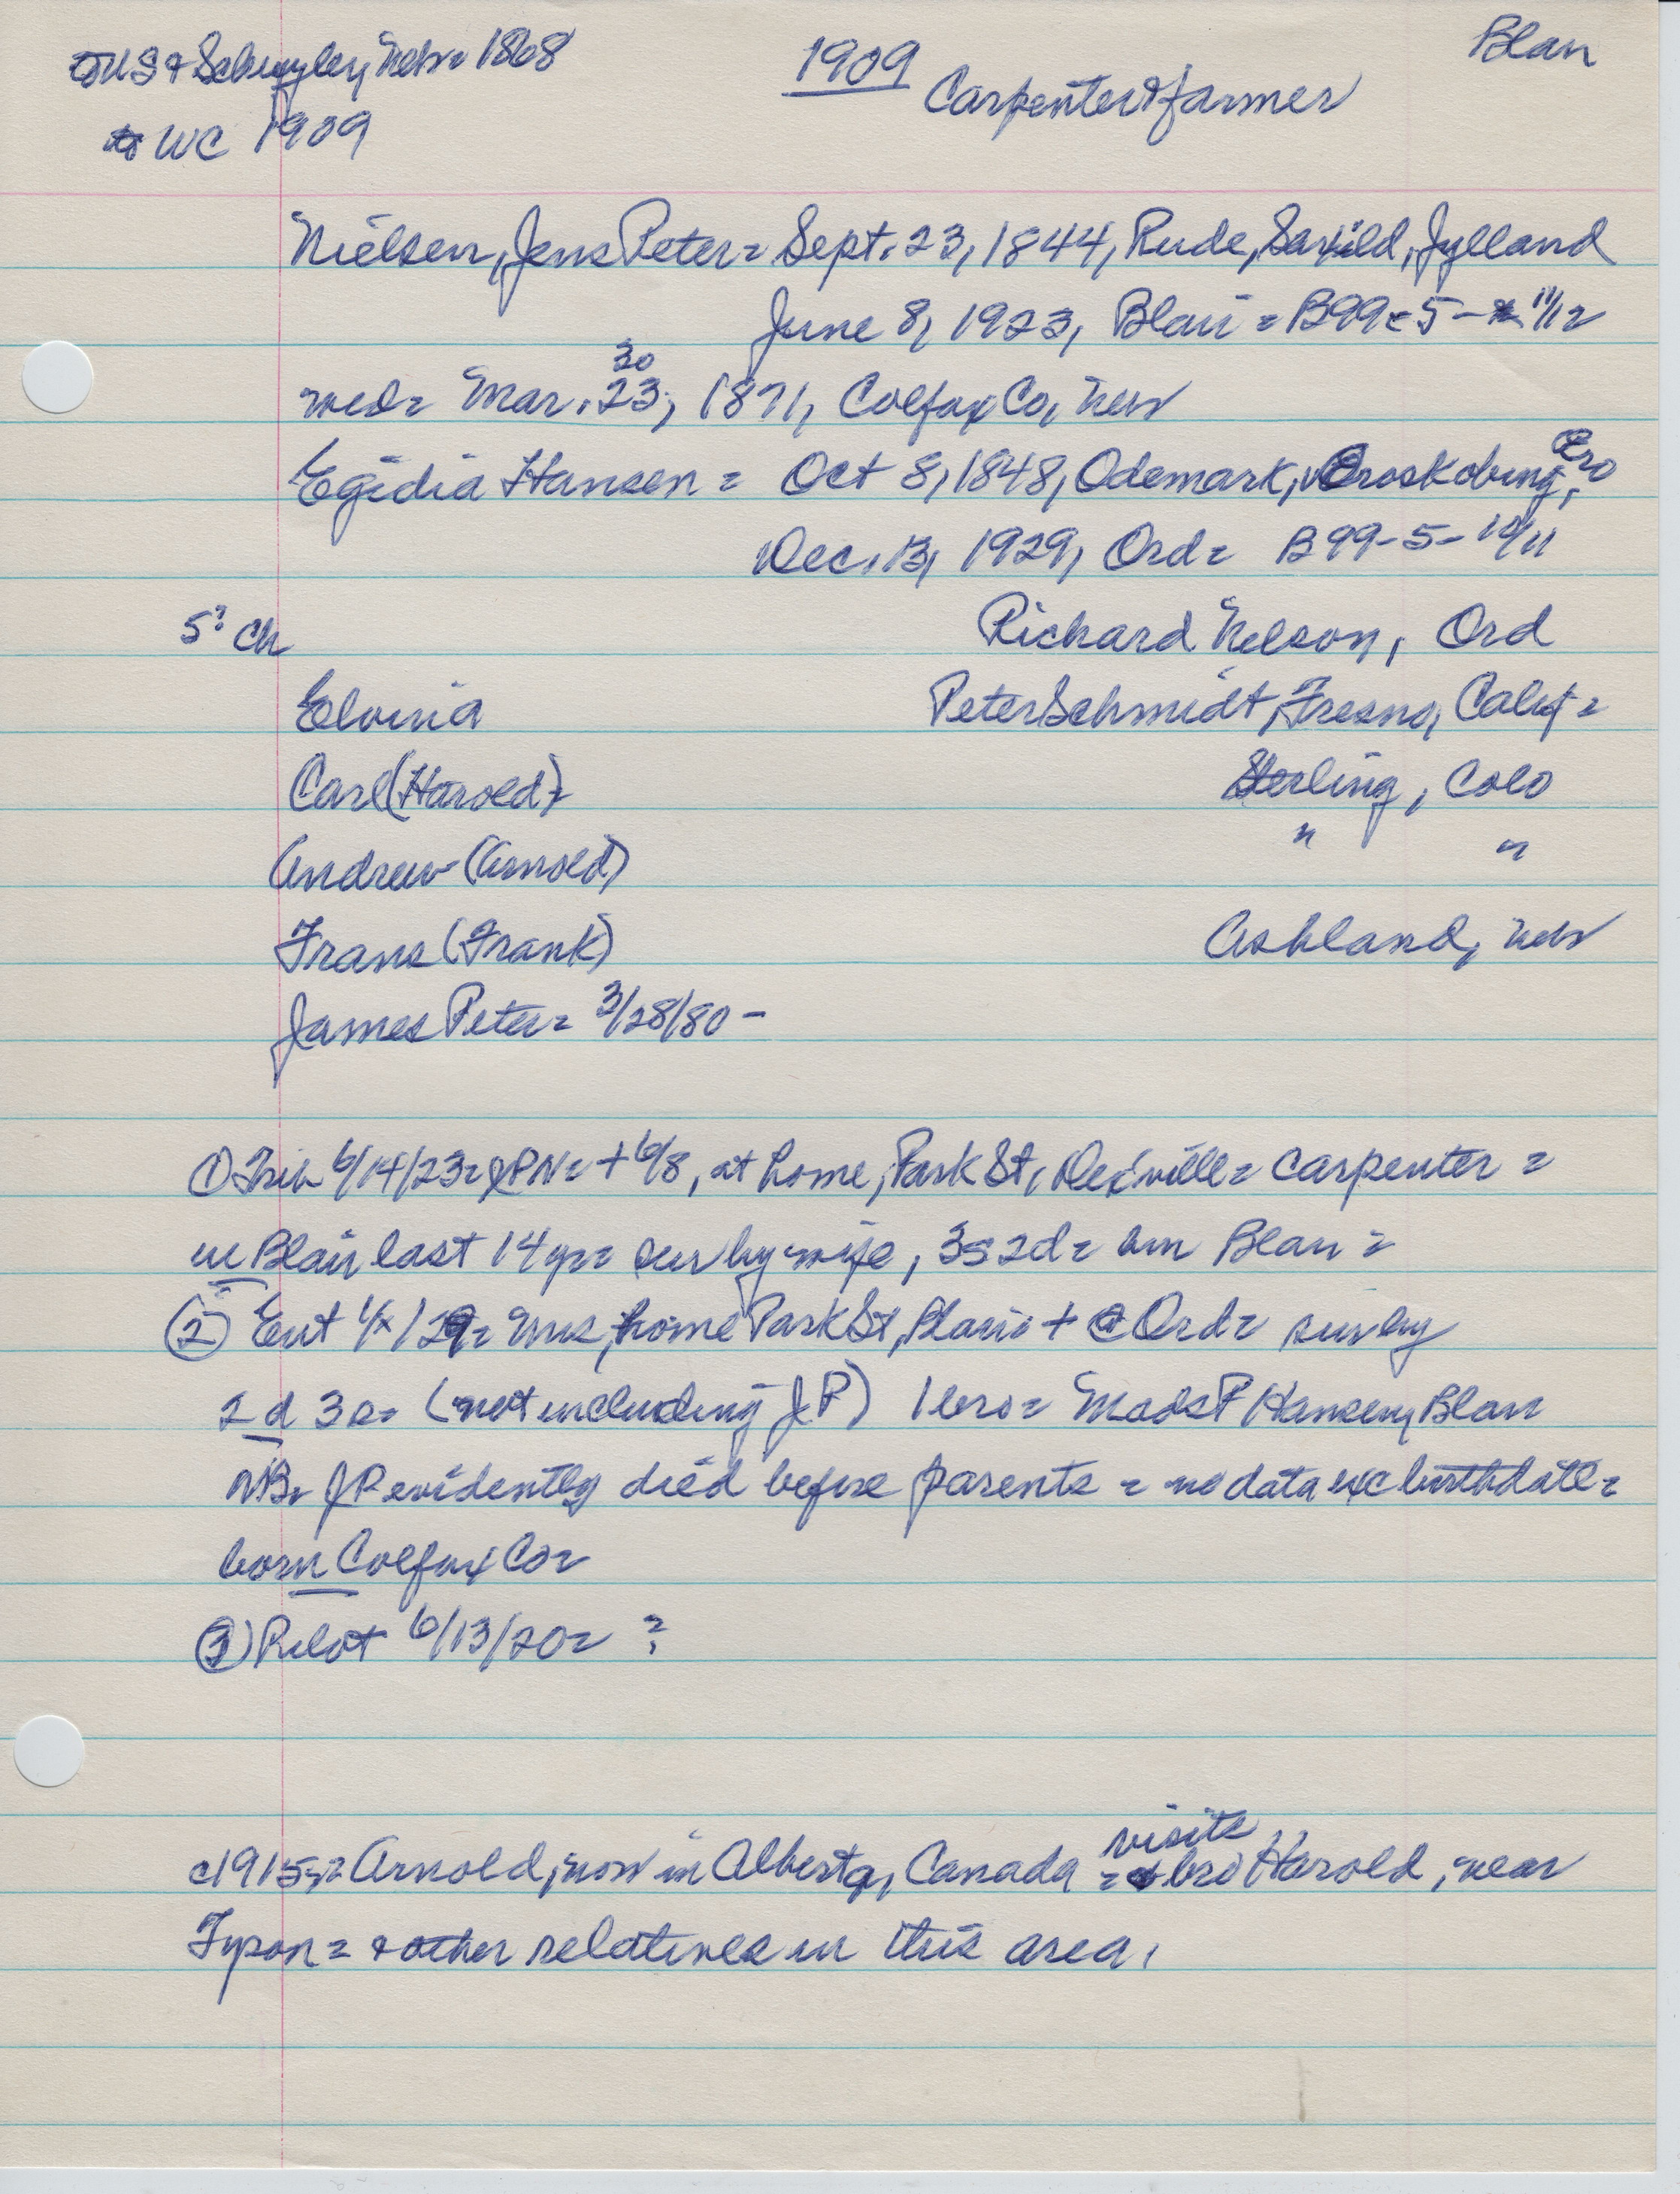 to US & Schuyler, Nebr = 1868
1909
Blair
Carpenter & farmer
to WC 1909
Nielsen, Jens Peter = Sept. 23, 1844, Rude, Saxild, Jylland
June 8, 1923, Blair = B99-5- 11/12
30
wed = Mar. 23, 1871, Colfax Co, Neb
Egidia Hansen = Oct 8, 1848, Odemark, Eroskobing, Ero
Dec. 13, 1929, Ord = B99-5-10/11
5? Ch
Richard Nelson, Ord
Elvinia
Peter Schmidt, Fresno, Calif =
Carl (Harold)
Sterling, Colo
Andrew (Arnold)
" "
Frans (Frank)
Ashland, Neb
James Peter = 3/28/80 -
① Trib 6/14/23 = JPN = + 6/8, at home, Park St, Dexville = carpenter =
in Blair last 14 yr = sur by wife, 3s 2d = bur Blair =
② Ent 1/x/29 = Mrs, home Park St, Blair = + @ Ord = sur by
2 d 3 s = (not including JP) 1 bro = Mads P Hansen, Blair
NB = JP evidently died before parents = no data exc birthdate =
born Colfax Co =
③ Pilot 6/13/20 = ?
visits
c1915 = Arnold, now in Alberta, Canada = bro Harold, near
Tyson = & other relatives in this area.